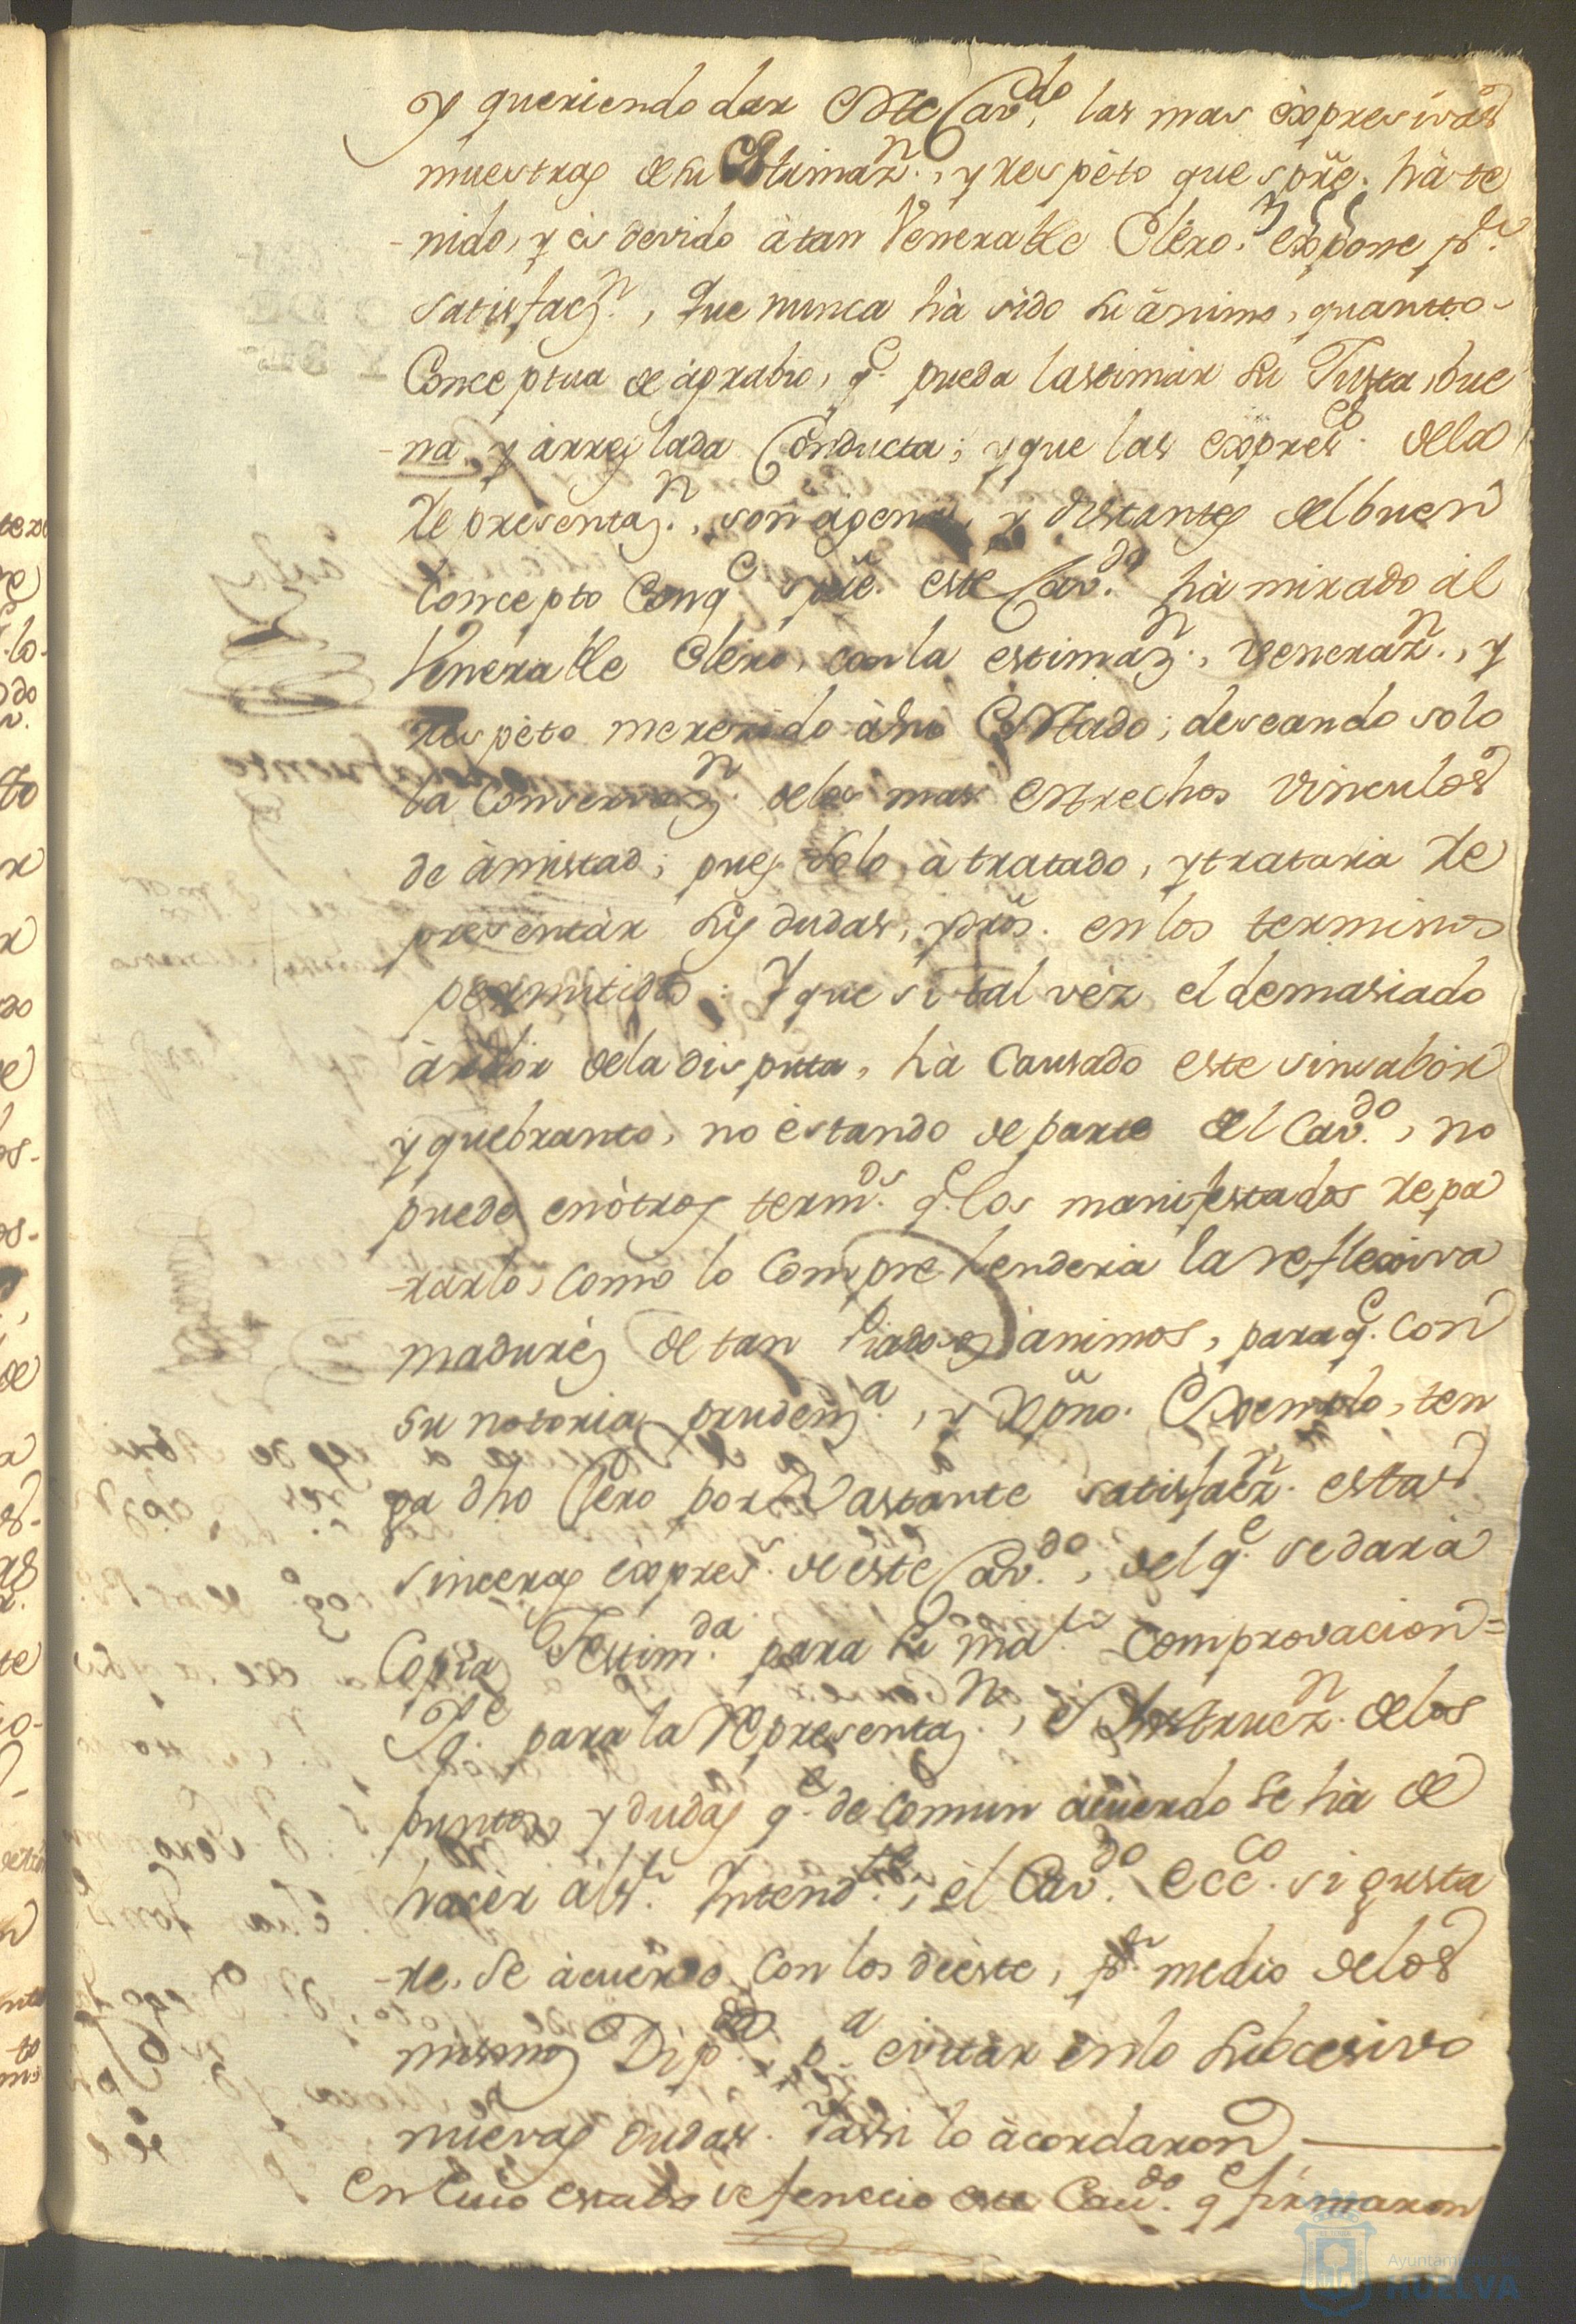 Y queriendo dar Este Cav.do las mas expresivas
muestras de su Estimaz.n, y respèto que spre. hà te
-nido, y es devido à tan Venerable Clèro. expone p.r
satisfacz.n, Que nunca hà sido su ànimo, quanto
Conceptua de àgrabio, q.e pueda lastimàr su Justa, bue
-na, y arreglada Conducta; y que las expres.s dela
Representaz.n, son agenas, y distantes del buen
Concepto Conq.e spre. este Cav.do hà mirado àl
Venerable Clèro, con la estimaz.n, veneraz.n, y
respèto merezido à su Estado; deseando solo
la Conservaz.n delos mas Estrechos vinculos
de àmistad; pues solo à tratado, y trataria re
presentàr sus dudas, y dros. en los terminos
permitidos: Y que si tal vèz el demasiado
àrdòr dela disputa, hà Causado este sinsabòr
y quebranto, no èstando de parte del Cav.do, no
puede en òtros term.os q.e los manifestados repa
-rarlo, como lo Comprehenderia la reflexiva
madurèz de tan Piadosos animos, paraq.e con
su notoria prudenz.a, y Xpno. Exemplo, ten
ga dho Clèro por Vastante satisfacz.n estas
sinceras expres.s de èste Cav.do, del q.e se darà
Copia Testim.da para su ma.r Comprovacion=
Y q.e para la Representaz.n, è Instrucz.n delos
puntos, y dudas q.e de Comun acuerdo se hà de
hacèr àl S.r Intend.te, èl Cav.do Ecc.co si gusta
-re, se àcuerde con los deèste, p.r medio delos
mismos Dip.dos, p.a evitàr en lo subcesivo
nuevas dudas. Y assi lo àcordaron
en Cuio estado se fenecio este Cav.do q.e firmaron
Ayuntamiento de
HUELVA